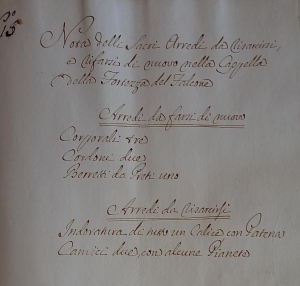 Nota delli Sacri Arredi da
e rifarsi di nuovo nella Cappella
della Fortezza del Falcone
Arredi da farsi di nuovo
Corporali tre
Cordoni due
Berretti da Preti uno
Arredi da
Indoratura di tutto un Calice con Patena
Camici due, con alcune Pianete